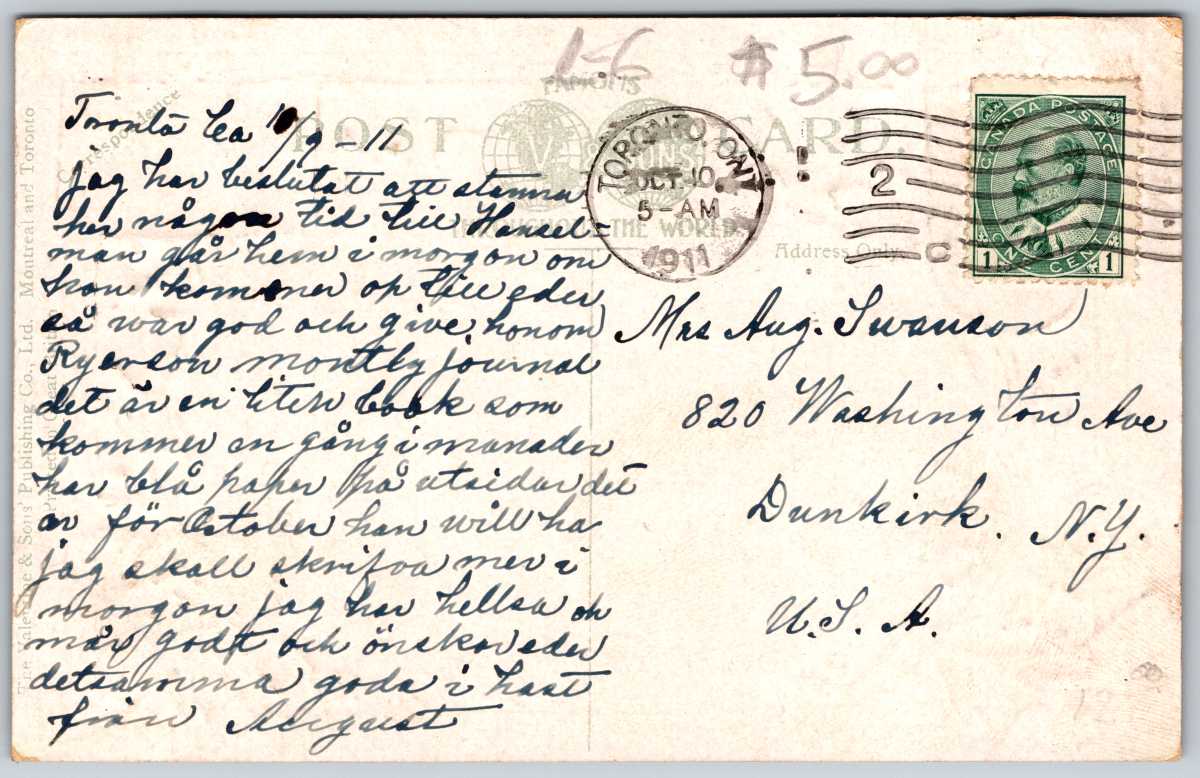 1-6 $5.00
FAMOUS
POST CARD.
THROUGHOUT THE WORLD
TORONTO, ONT.
OCT 10
5-AM
1911
2
C
CANADA POSTAGE
1 ONE CENT 1
Correspondence
Address Only.
Montreal and Toronto
Toronto Ca 10/9-11
Jag har beslutat att stanna
her någon tid till Hansel-
man går hem i morgon om
han kommer op till eder
så war god och give honom
Ryerson montly journal
det är en liten book som
kommer en gång i manader
har blå paper på utsidar det
er för October han will ha
jag skall skrifva mer i
morgon jag har hellsa ok
mår godt och önskar eder
detsamma goda i hast
från August
Mrs Aug. Swanson
820 Washington Ave
Dunkirk. N.Y.
U.S.A.